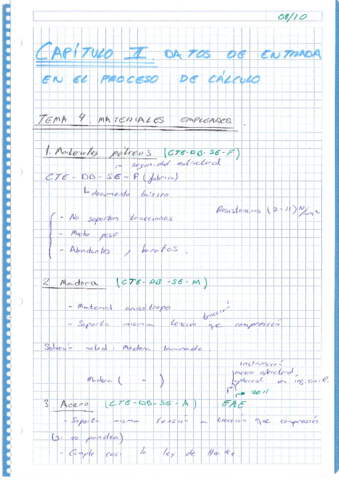 08/10
CAPÍTULO II DATOS DE ENTRADA
EN EL PROCESO DE CÁLCULO
TEMA 4. MATERIALES EMPLEADOS
1. Materiales pétreos (CTE-DB-SE-F)
seguridad estructural
CTE-DB-SE-F (fábrica)
documento básico
Resistencias (2-11) N/m²
- No soportan tracciones
- Mucho peso
- Abundantes y baratos.
2 Madera (CTE-DB-SE-M)
- Material anisótropo
tracción
- Soporta misma que compresión
Madera laminada
Madera ( - )
instrucción
acero estructural
2011
3 Acero (CTE-DB-SE-A) EAE
- Soporta misma tracción que compresión
(si no pandea)
- Cumple casi la ley de Hooke